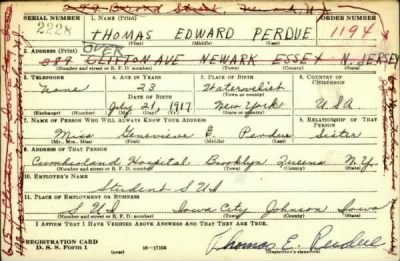 SERIAL NUMBER 1. NAME (Print) ORDER NUMBER
2228 THOMAS EDWARD PERDUE 1194
(First) (Middle) (Last)
2. ADDRESS (Print)
OVER
CLIFTON AVE NEWARK ESSEX N. JERSEY
(Number and street or R. F. D. number) (Town) (County) (State)
3. TELEPHONE 4. AGE IN YEARS 5. PLACE OF BIRTH 6. COUNTRY OF CITIZENSHIP
None 23 Watervliet
DATE OF BIRTH (Town or county)
July 21, 1917 New York U S A
(Mo.) (Day) (Yr.) (State or country)
7. NAME OF PERSON WHO WILL ALWAYS KNOW YOUR ADDRESS 8. RELATIONSHIP OF THAT PERSON
Miss Genevieve E Perdue Sister
(Mr., Mrs., Miss) (First) (Middle) (Last)
9. ADDRESS OF THAT PERSON
Cumberland Hospital Brooklyn Queens N.Y.
(Number and street or R. F. D. number) (Town) (County) (State)
10. EMPLOYER'S NAME
Student S U I
11. PLACE OF EMPLOYMENT OR BUSINESS
S U I Iowa City Johnson Iowa
(Number and street or R. F. D. number) (Town) (County) (State)
I AFFIRM THAT I HAVE VERIFIED ABOVE ANSWERS AND THAT THEY ARE TRUE.
REGISTRATION CARD
D. S. S. Form 1 16—17105 Thomas E. Perdue
(Registrant's signature)